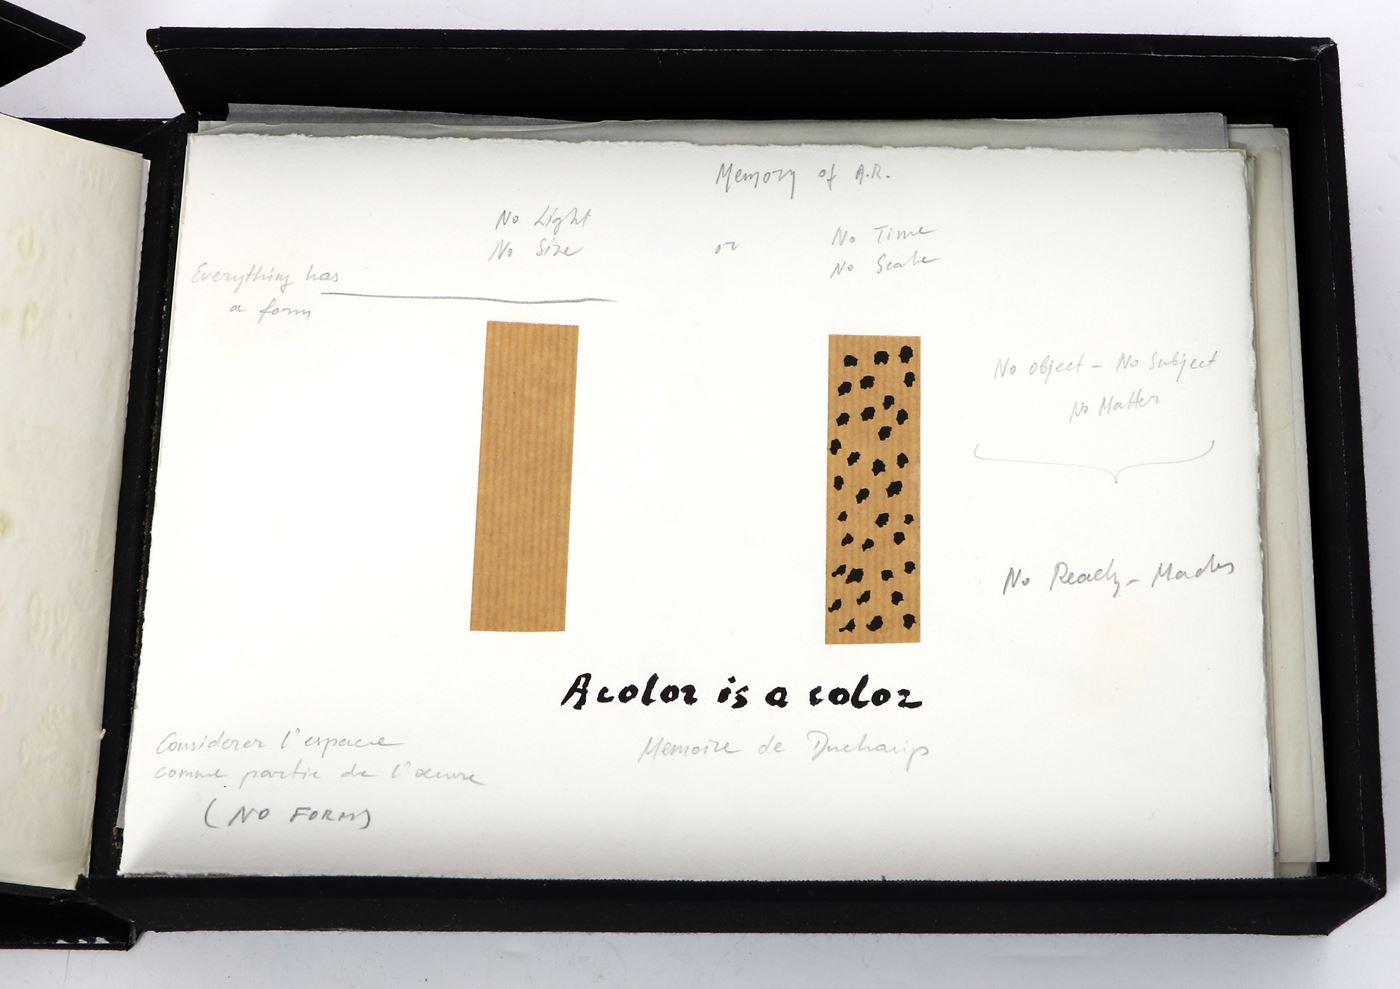 Memory of A.R.
No Light
No Size
or
No Time
No Scale
Everything has
a form
No object - No Subject
No Matter
No Ready-Mades
A color is a color
Memoire de Duchamp
Considerer l'espace
comme partie de l'œuvre
(NO FORM)